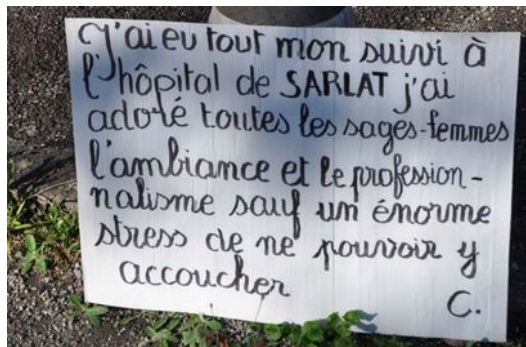 J'ai eu tout mon suivi à
l'hôpital de SARLAT j'ai
adoré toutes les sages-femmes
l'ambiance et le profession-
nalisme sauf un énorme
stress de ne pouvoir y
accoucher
C.